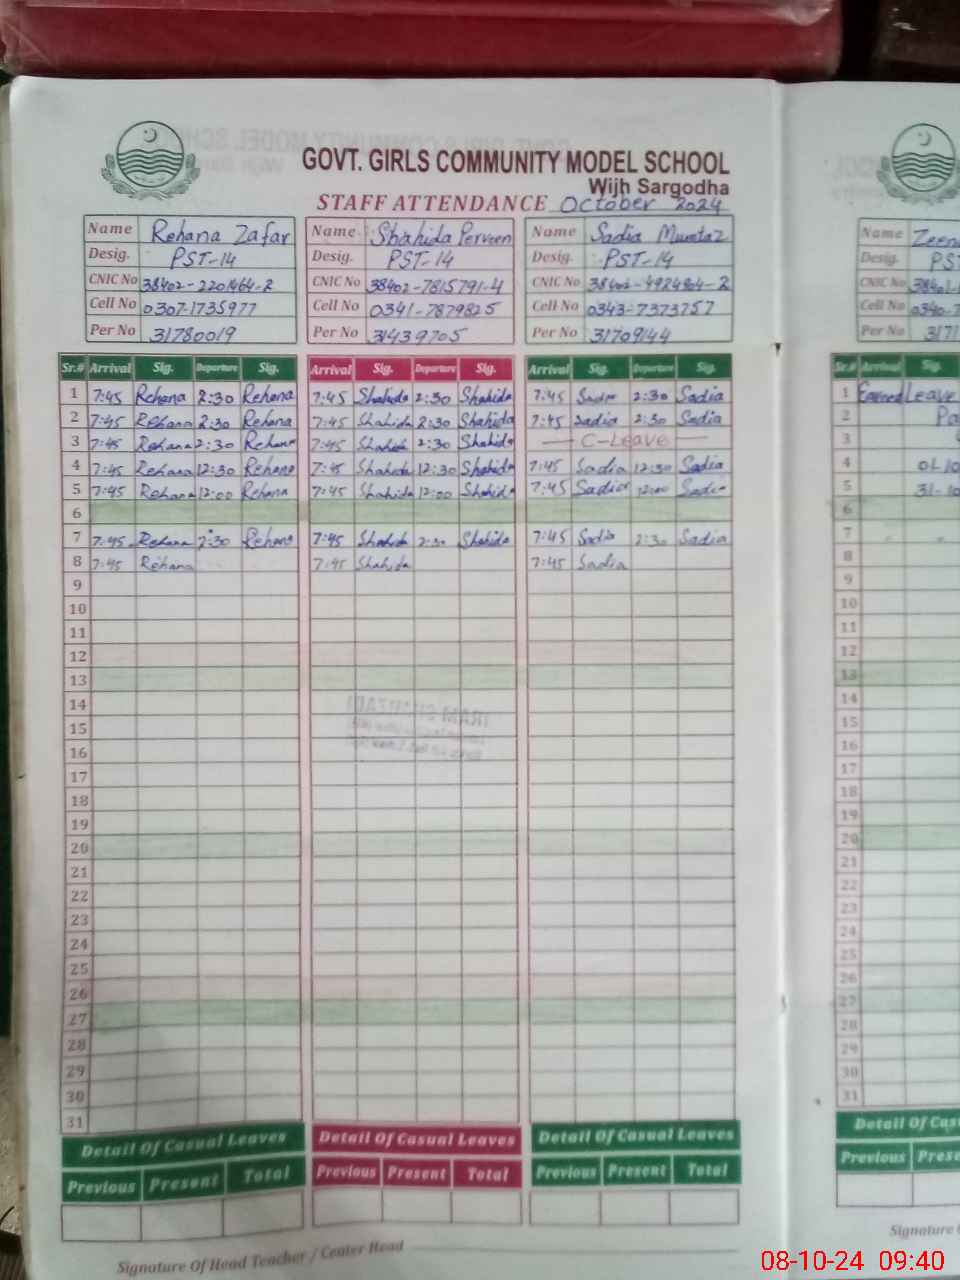 GOVT. GIRLS COMMUNITY MODEL SCHOOL
Wijh Sargodha
STAFF ATTENDANCE October 2024
Name Rehana Zafar Name Shahida Perveen Name Sadia Mumtaz Name
Desig. PST-14 Desig. PST-14 Desig. PST-14 Desig. PS
CNIC No 38402-2201464-2 CNIC No 38402-7815791-4 CNIC No CNIC No
Cell No 0307-1735977 Cell No 0341-7879825 Cell No 0343-7373757 Cell No
Per No 31780019 Per No 31439705 Per No 31709144 Per No
Sr.# Arrival Sig. Departure Sig. Arrival Sig. Departure Sig. Arrival Sig. Departure Sig. Sr.# Arrival Sig.
1 7:45 Rehana 2:30 Rehana 7:45 Shahida 2:30 Shahida 7:45 Sadia 2:30 Sadia 1 Earned Leave
2 7:45 Rehana 2:30 Rehana 7:45 Shahida 2:30 Shahida 7:45 Sadia 2:30 Sadia 2
3 7:45 Rehana 2:30 Rehana 7:45 Shahida 2:30 Shahida C-Leave 3
4 7:45 Rehana 12:30 Rehana 7:45 Shahida 12:30 Shahida 7:45 Sadia 12:30 Sadia 4
5 7:45 Rehana 12:00 Rehana 7:45 Shahida 12:00 Shahida 7:45 Sadia 12:00 Sadia 5 31-10
6 6
7 7:45 Rehana 2:30 Rehana 7:45 Shahida 2:30 Shahida 7:45 Sadia 2:30 Sadia 7
8 7:45 Rehana 7:45 Shahida 7:45 Sadia 8
9 9
10 10
11 11
12 12
13 13
14 14
15 15
16 16
17 17
18 18
19 19
20 20
21 21
22 22
23 23
24 24
25 25
26 26
27 27
28 28
29 29
30 30
31 31
Detail Of Casual Leaves Detail Of Casual Leaves Detail Of Casual Leaves Detail Of Cas
Previous Present Total Previous Present Total Previous Present Total Previous Prese
Signature Of Head Teacher / Center Head Signature
08-10-24 09:40